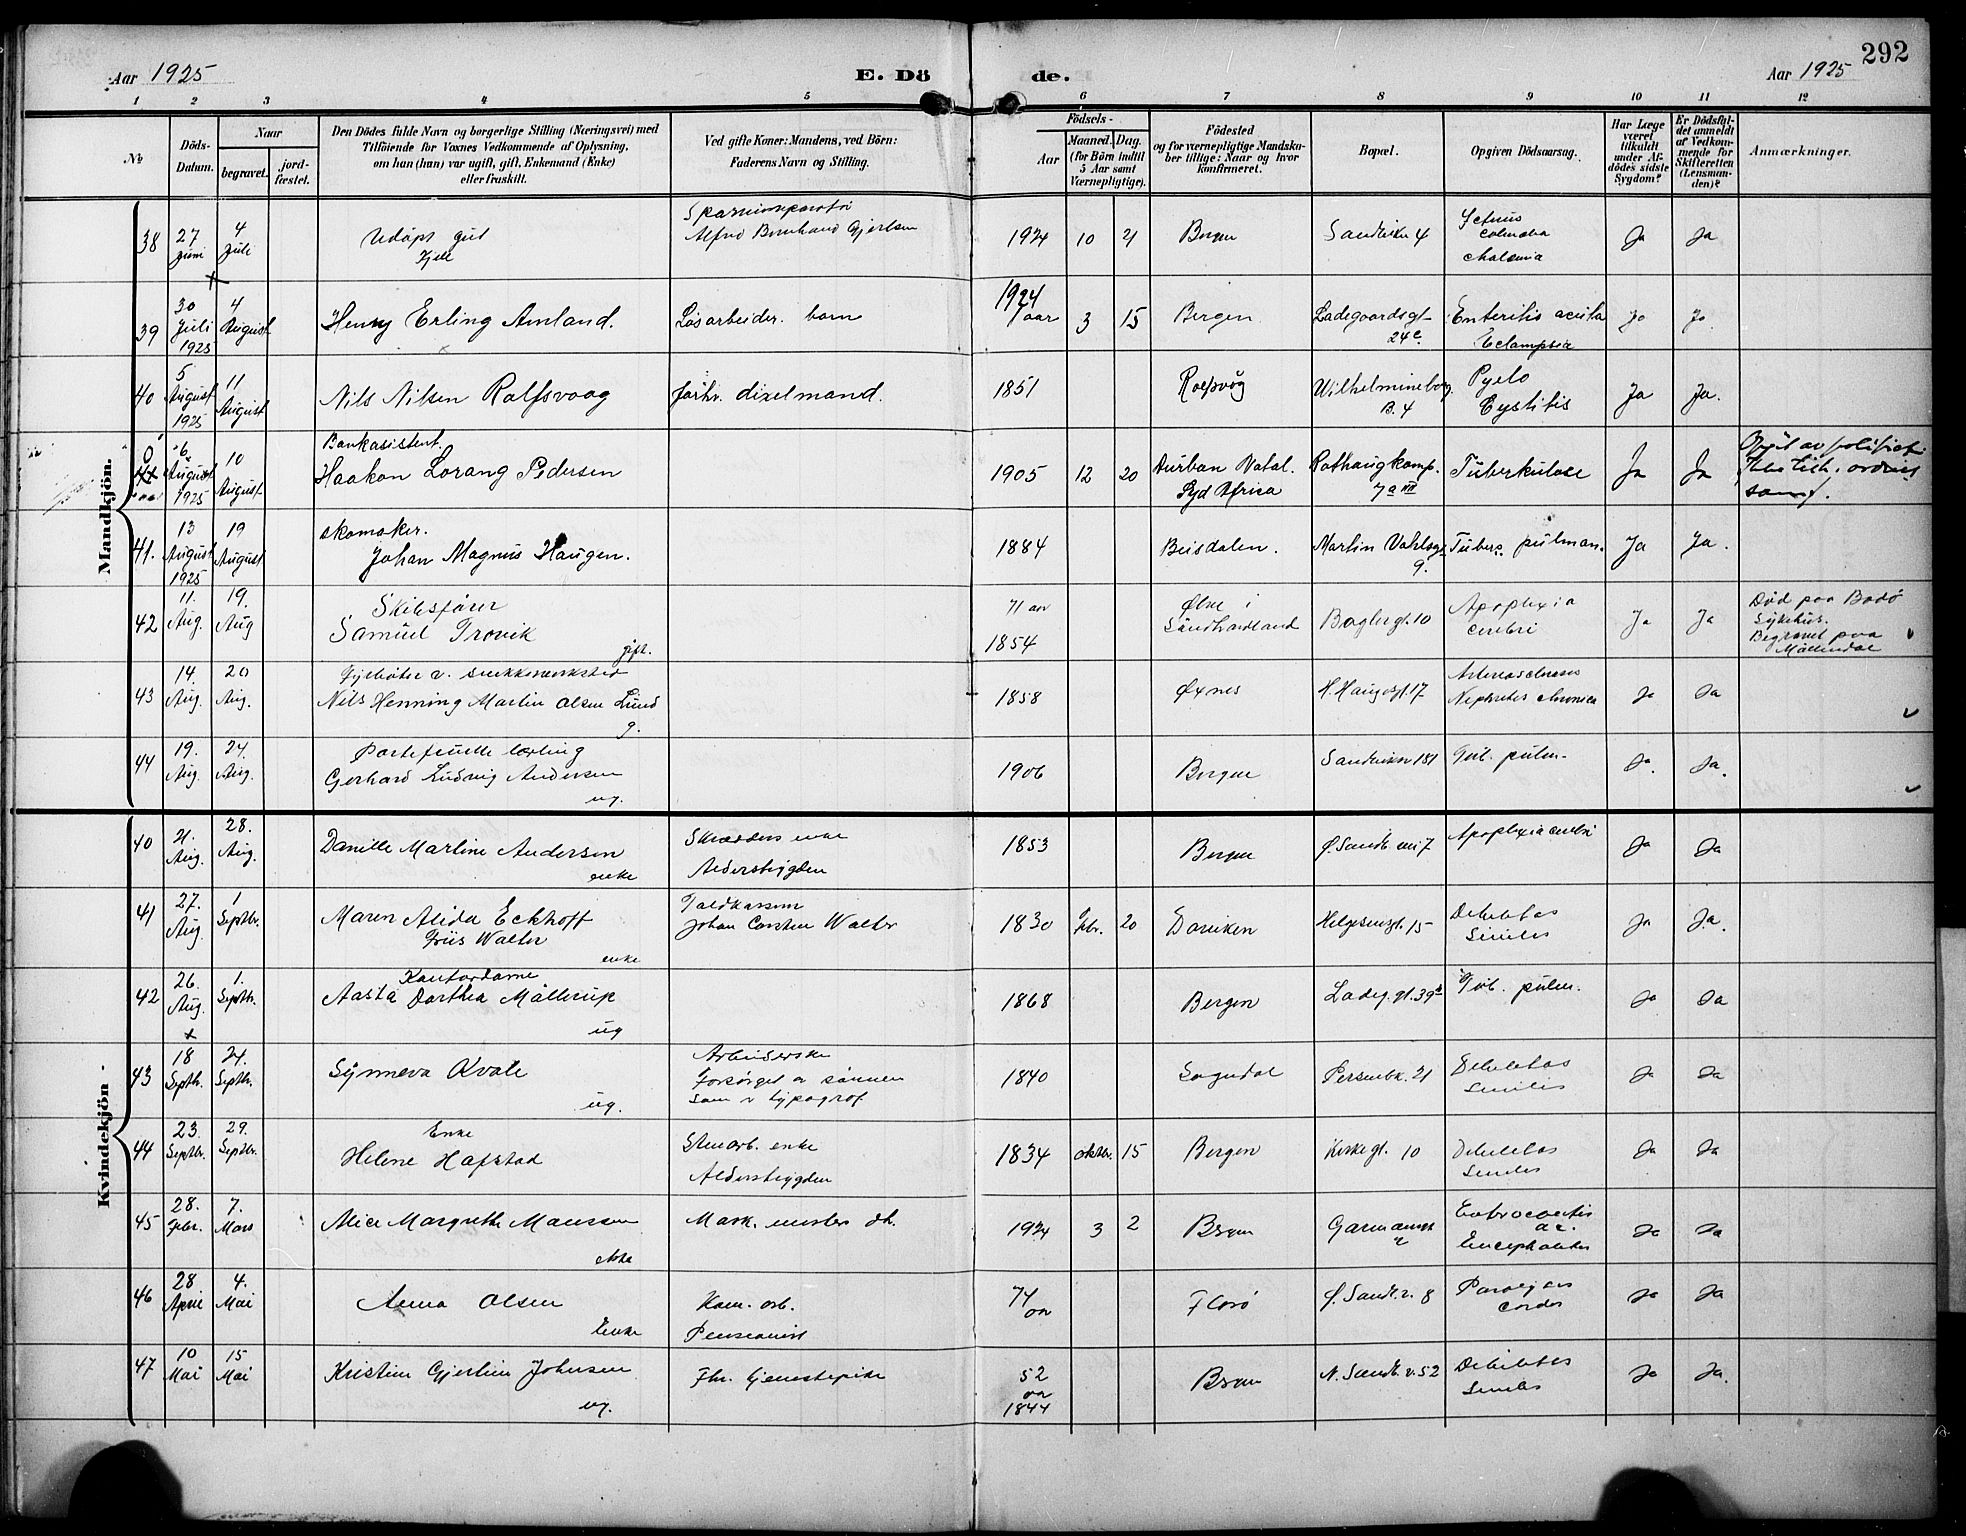 292
Aar 1925
E. Dö
de.
Aar 1925
1 2 3 4 5 6 7 8 9 10 11 12
№
Döds-
Datum.
Naar
begravet.
jord-
fæstet.
Den Dödes fulde Navn og borgerlige Stilling (Næringsvei) med
Tilföiende for Voxnes Vedkommende af Oplysning,
om han (hun) var ugift, gift, Enkemand (Enke)
eller fraskilt.
Ved gifte Koner: Mandens, ved Börn:
Faderens Navn og Stilling.
Födsels-
Aar
Maaned.
Dag.
(for Börn indtil
5 Aar samt
Værnepligtige).
Födested
og for værnepligtige Mandska-
ber tillige: Naar og hvor
konfirmeret.
Bopæl.
Opgiven Dödsaarsag.
Har Læge
været
tilkaldt
under Af-
dödes sidste
Sygdom?
Er Dödsfal-
det anmeldt
af Vedkom-
mende for
Skifteretten
(Lensman-
den)?
Anmærkninger.
Mandkjön.
38 27 Juni 4 Juli Udöpt gut Alfred Bernhard Gjertsen 1924 10 21 Bergen Sandviken 4 Ja Ja
39 30 Juli 1925 4 August Henry Erling Amland. Løsarbeider. barn 1924 1 aar 3 15 Bergen Ladegaardsgt 24c. Enteritis acuta Eclampsia Ja Ja
40 5 August 1925 11 August Nils Nilsen Rolfsvaag 1851 Wilhelmineborg B. 4 Pyelo Cystitis Ja Ja.
0 6 August 1925 10 August Bankasistent. Haakon Lorang Pedersen 1905 12 20 Durban Natal. Syd Africa Rothaugkomp. 7a III Tuberkulose Ja Ja
41. 13 August 1925 19 August skomaker. Johan Magnus Haugen. 1884 Martin Vahlsgt 9. Tuberc. pulman. Ja Ja.
42 11. Aug. 19. Aug Skibsfører Samuel Trovik gift. 71 aar 1854 Ølve i Søndhordland Baglergt. 10 Apoplexia cerebri Ja Ja Død paa Bodø Sykehus. Begravet paa Møllendal
43 14. Aug. 20 Aug. Nils Henning Martin Olsen Lund g. 1858 Øxnes H. Haugesgt. 17 Nephritis chronica Ja Ja
44 19. Aug. 24. Aug. Portefeuille lærling Gerhard Ludvig Andersen ug. 1906 Bergen Sandviken 181 Tub. pulm. Ja. Ja.
Kvindekjön
40 21. Aug. 28. Aug. Danille Martine Andersen enke Skrædders enke Alderstrygden 1853 Bergen Ø. Sandv. vei 7 Apoplexia cerebri Ja Ja
41 27. Aug. 1 Septbr. Maren Alida Eckhoff Friis Walter enke Toldkasserer Johan Carsten Walter 1830 Febr. 20 Helgesensgt. 15 Debilitas Senilis Ja Ja.
42 26. Aug. 1. Septbr. Kontordame Aasta Dorthea Møllerup ug 1868 Bergen Ladeg. gt. 39b Tub. pulm. Ja Ja
43 18 Septbr. 24. Septbr. Synneva Kvale ug. Arbeiderske Forsørget av sønnen som er typograf 1840 Sogndal Persenbk. 21 Debilitas Senilis Ja Ja
44 23. Septbr. 29. Septbr. Enke Helene Hafstad Stenarb. enke Alderstrygden 1834 oktbr. 15 Bergen Kirkegt. 10 Debilitas Senilis Ja Ja
45 28. Febr. 7. Mars Alice Margrethe Monssen Mask. mesters dt. 1924 3 2 Bergen Encephalitis Ja Ja
46 28 April 4. Mai Anna Olsen Enke Kom. arb. Pensionist 74 aar Florø Ø. Sandv. v. 8 Paralysis cordis Ja Ja
47 10 Mai 15 Mai Kristine Gjertine Johnsen ug. Fhv. tjenestepike 52 aar 1844 Bergen N. Sandv. v. 52 Debilitas Senilis Ja Ja.